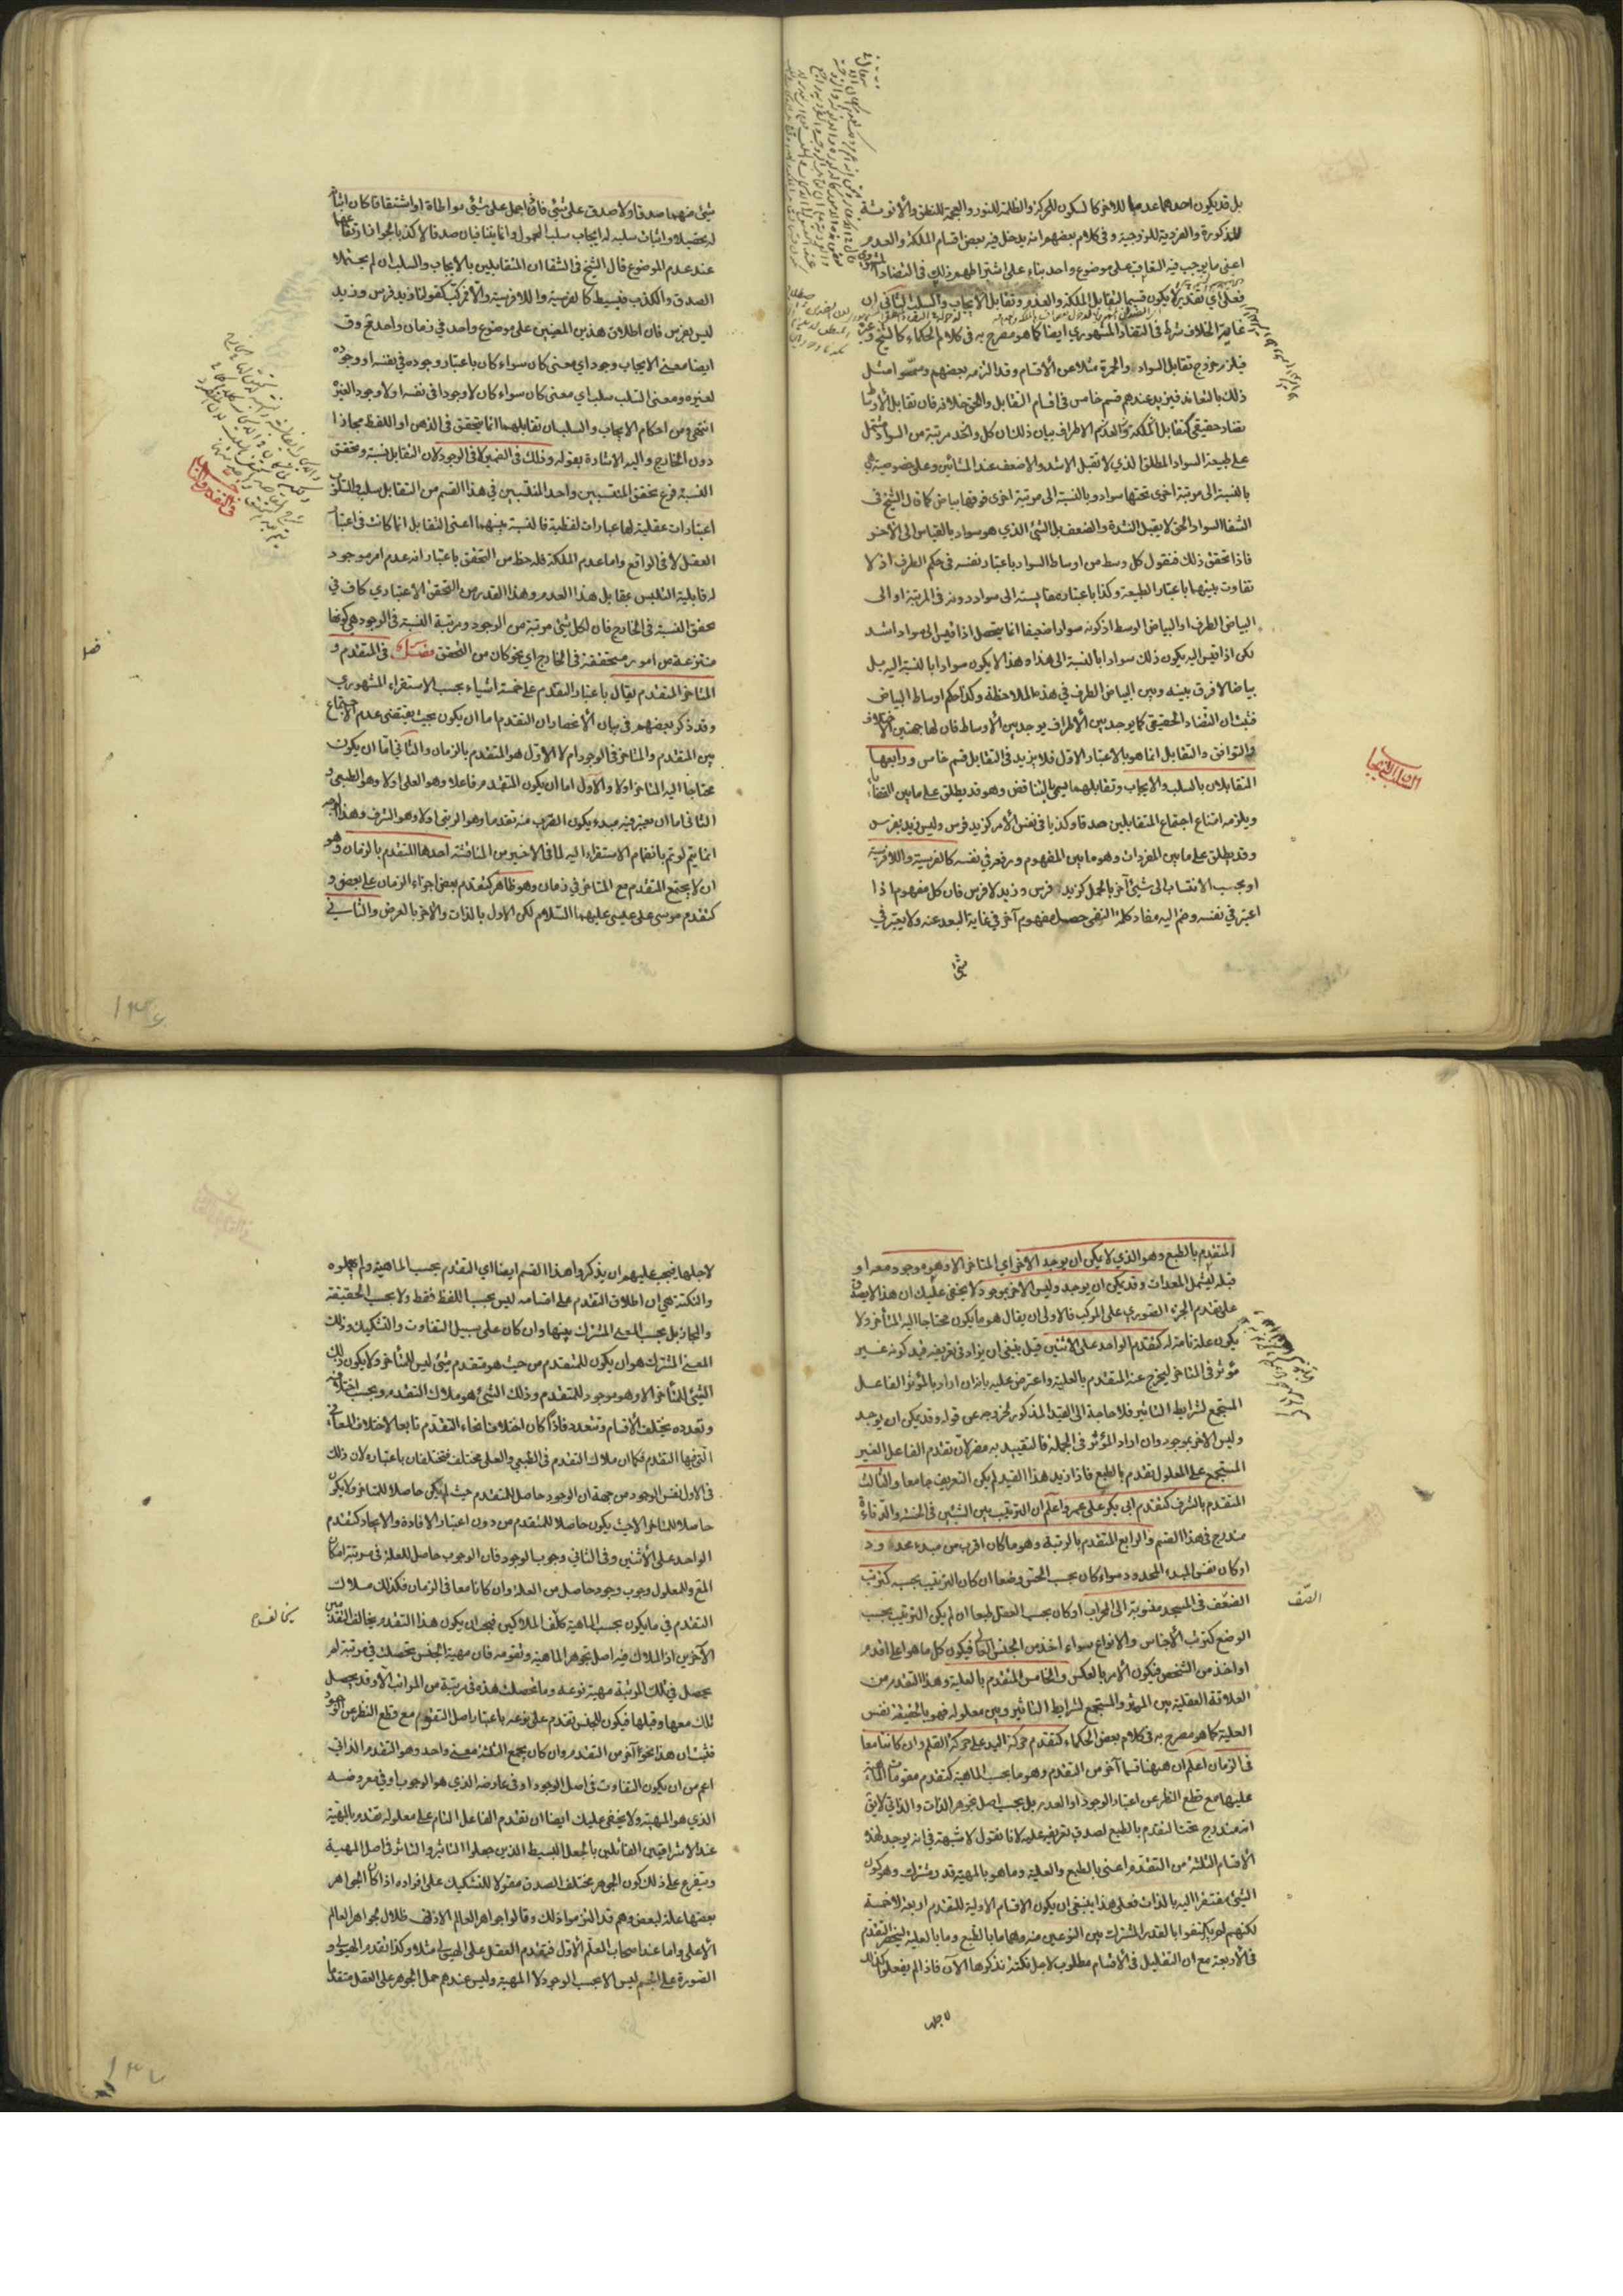 بل قد يكون احدهما عدما للاخر كالسكون للحركة والظلمة للنور والعجمة للنطق والانوثة
للذكورة والفردية للزوجية وفي كلام بعضهم انه يدخل فيه بعض اقسام الملكة والعدم
اعني ما يوجب فيه التعاقب على موضوع واحد بناء على اشتراطهم ذلك في التضاد المشهوري
فعلى اي تقدير لا يكون قسيما لتقابل الملكة والعدم وتقابل الايجاب والسلب الثاني ان
غاية الخلاف شرط في التضاد المشهوري ايضا كما هو مصرح به في كلام الحكماء كالشيخ وغيره
فيلزم خروج تقابل السواد والحمرة مثلا عن الاقسام وقد التزمه بعضهم وسموا مثل
ذلك بالتعاند فيزيد عندهم قسم خامس في اقسام التقابل والحق خلافه فان تقابل الاوساط
تضاد حقيقي كتقابل الاطراف بيان ذلك ان كل واحد مرتبة من السواد مشتمل
على طبيعة السواد المطلق الذي لا تقبل الاشد والاضعف عند المشائين وعلى خصوصية هي
بالنسبة الى مرتبة اخرى تحتها سواد وبالنسبة الى مرتبة اخرى فوقها بياض كما قال الشيخ في
الشفا السواد الحق لا يقبل الشدة والضعف بل الشيء الذي هو سواد بالقياس الى الاخر
فاذا تحقق ذلك فنقول كل وسط من اوساط السواد باعتبار نفسه في حكم الطرف اذ لا
تفاوت بينهما باعتبار الطبيعة وكذا باعتبار مقايسته الى سواد دونه في المرتبة او الى
البياض الطرف او البياض الوسط اذ كونه سوادا ضعيفا انما يتحصل اذا قيس الى سواد اشد
لكن اذا قيس اليه يكون ذلك سوادا بالنسبة الى هذا وهذا لا يكون سوادا بالنسبة اليه بل
بياضا لا فرق بينه وبين البياض الطرف في هذه الملاحظة وكذا حكم اوساط البياض
فثبت ان التضاد الحقيقي كما يوجد بين الاطراف يوجد بين الاوساط فان لها جهتين الاختلاف
والتوافق والتقابل انما هو بالاعتبار الاول فلا يزيد في التقابل قسم خامس ورابعها
المتقابلان بالسلب والايجاب وتقابلهما يسمى بالتناقض وهو قد يطلق على ما بين القضايا
ويلزمه امتناع اجتماع المتقابلين صدقا وكذبا في نفس الامر كزيد فرس وليس زيد بفرس
وقد يطلق على ما بين المفردات وهو ما بين المفهوم ورفعه في نفسه كالفرسية واللافرسية
او بحسب الانتساب الى شيء آخر بالحمل كزيد فرس وزيد لا فرس فان كل مفهوم اذا
اعتبر في نفسه وضم اليه مفاد كلمة النفي حصل مفهوم آخر في غاية البعد عنه ولا يعتبر في
شيء
شيء منهما صدق او لا صدق على شيء فاذا حمل على شيء مواطاة او اشتقاقا كان اثباته
له تحصيلا واثبات سلبه له ايجاب سلب المحمول وانما يتنافيان صدقا لا كذبا لجواز ارتفاعهما
عند عدم الموضوع قال الشيخ في الشفا ان المتقابلين بالايجاب والسلب ان لم يحتملا
الصدق والكذب فبسيط كالفرسية واللافرسية والا فمركب كقولنا زيد فرس وزيد
ليس بفرس فان اطلاق هذين المعنيين على موضوع واحد في زمان واحد مح وقال
ايضا معنى الايجاب وجود اي معنى كان سواء كان باعتبار وجوده في نفسه او وجوده
لغيره ومعنى السلب سلب اي معنى كان سواء كان لا وجودا في نفسه او لا وجود الغيره
انتهى ومن احكام الايجاب والسلب ان تقابلهما انما يتحقق في الذهن او اللفظ مجازا
دون الخارج واليه الاشارة بقوله وذلك في الضمير لا في الوجود لان التقابل نسبة وتحقق
النسبة فرع تحقق المنتسبين واحد المنتسبين في هذا القسم من التقابل سلب والسلوب
اعتبارات عقلية لها عبارات لفظية فالنسبة بينهما اعني التقابل انما كانت في اعتبار
العقل لا في الواقع واما عدم الملكة فله حظ من التحقق باعتبار انه عدم امر موجود
له قابلية التلبس بمقابل هذا العدم وهذا القدر من التحقق الاعتباري كاف في
تحقق النسبة في الخارج فان لكل شيء مرتبة من الوجود ومرتبة النسبة في الوجود هي كونها
منتزعة من امور متحققة في الخارج اي نحو كان من التحقق فصل في المتقدم و
المتاخر المتقدم يقال باعتبار التقدم على خمسة اشياء بحسب الاستقراء المشهوري
وقد ذكر بعضهم في بيان الانحصار ان التقدم اما ان يكون بحيث يقتضي عدم الاجتماع
بين المتقدم والمتاخر في الوجود ام لا الاول هو المتقدم بالزمان والثاني اما ان يكون
محتاجا اليه المتاخر او لا والاول اما ان يكون المتقدم فاعلا وهو العلي او لا وهو الطبعي و
الثاني اما ان يعتبر فيه مبدء يكون القرب منه تقدما وهو الرتبي او لا وهو الشرف وهذا الوجه
انما يتم لو تم بانضمام الاستقراء اليه لما في الاخير من المناقشة احدها المتقدم بالزمان وهو
ان لا يجتمع المتقدم مع المتاخر في زمان وهو ظاهر كتقدم بعض اجزاء الزمان على بعض و
كتقدم موسى على عيسى عليهما السلام لكن الاول بالذات والاخر بالعرض والثاني
المتقدم بالطبع وهو الذي لا يمكن ان يوجد الاخر اي المتاخر الا وهو موجود معه او
قبله ليشمل المعدات وقد يمكن ان يوجد وليس الاخر بموجود لا يخفى عليك ان هذا لا يصدق
على تقدم الجزء الصوري على المركب فالاولى ان يقال هو ما يكون محتاجا اليه المتأخر ولا
يكون علة تامة له كتقدم الواحد على الاثنين قيل ينبغي ان يزاد في تعريفه قيد كونه غير
مؤثر في المتاخر ليخرج عنه المتقدم بالعلية واعترض عليه بانه ان اراد بالمؤثر الفاعل
المستجمع لشرايط التاثير فلا حاجة الى القيد المذكور لخروجه عن قوله وقد يمكن ان يوجد
وليس الاخر بموجود وان اراد المؤثر في الجملة فالتقييد به مضر لان تقدم الفاعل الغير
المستجمع على المعلول تقدم بالطبع فاذا زيد هذا القيد لم يكن التعريف جامعا والثالث
المتقدم بالشرف كتقدم ابي بكر على عمر واعلم ان الترتيب بين الشيئين في الخسة والدناءة
مندرج في هذا القسم والرابع المتقدم بالرتبة وهو ما كان اقرب من مبدء محدود
او كان نفس المبدء المحدود سواء كان بحسب الحس وضعا ان كان الترتيب بحسبه كترتب
الصفوف في المسجد منسوبة الى المحراب او كان بحسب العقل طبعا ان لم يكن الترتيب بحسب
الصف
الوضع كترتب الاجناس والانواع سواء اخذ من الجنس العالي فيكون كل ما هو اعلى اقدم
او اخذ من الشخص فيكون الامر بالعكس والخامس المتقدم بالعلية وهذا التقدم من
العلاقة العقلية بين المؤثر والمستجمع لشرايط التاثير وبين معلوله فهو بالحقيقة نفس
العلية كما هو مصرح به في كلام بعض الحكماء كتقدم حركة اليد على حركة القلم وان كانتا معا
في الزمان اعلم ان ههنا قسما آخر من التقدم وهو ما بحسب الماهية كتقدم مقومات الماهية
عليها مع قطع النظر عن اعتبار الوجود او العدم بل بحسب اصل تجوهر الذات والذاتي لا يق
انه مندرج تحت المتقدم بالطبع لصدق تعريفه عليه لانا نقول لا شبهة في انه يوجد لهذه
الاقسام الثلثة من التقدم اعني بالطبع والعلية وما هو بالمهية قدر مشترك وهو كون
الشيء مفتقرا اليه بالذات فعلى هذا ينبغي ان يكون الاقسام الاولية للتقدم اربعة لا خمسة
لكنهم لم يكتفوا بالقدر المشترك بين النوعين منه وهما ما بالطبع وما بالعلية لينحصر التقدم
في الاربعة مع ان التقليل في الاقسام مطلوب لاجل نكتة نذكرها الآن فاذا لم يفعلوا كذلك
لاجلها
لاجلها فيجب عليهم ان يذكروا هذا القسم ايضا اي التقدم بحسب الماهية ولم يهملوه
والنكتة هي ان اطلاق التقدم على اقسامه ليس بحسب اللفظ فقط ولا بحسب الحقيقة
والمجاز بل بحسب المعنى المشترك بينها وان كان على سبيل التفاوت والتشكيك وذلك
المعنى المشترك هو ان يكون للمتقدم من حيث هو متقدم شيء ليس للمتأخر ولا يكون ذلك
الشيء للمتأخر الا وهو موجود للمتقدم وذلك الشيء هو ملاك التقدم وبحسب اختلافه
وتعدده يختلف الاقسام وتتعدد فاذا كان اختلاف انحاء التقدم تابعا لاختلاف المعاني
التي فيها التقدم فكما ان ملاك التقدم في الطبعي والعلي مختلف فتختلفان باعتباره لان ذلك
في الاول نفس الوجود من جهة ان الوجود حاصل للمتقدم حيث لم يكن حاصلا للمتاخر ولا يكون
حاصلا للمتاخر الا حيث يكون حاصلا للمتقدم من دون اعتبار الافادة والايجاد كتقدم
الواحد على الاثنين وفي الثاني وجوب الوجود فان الوجوب حاصل للعلة في مرتبة امكان
المع وللمعلول وجوب وجود حاصل من العلة وان كانا معا في الزمان فكذلك ملاك
التقدم في ما يكون بحسب الماهية كلا الملاكين فيجب ان يكون هذا التقدم يخالف التقدمين
الآخرين اذ الملاك فيه اصل تجوهر الماهية وتقومه فان مهية الجنس تحصلت في مرتبة لم
يحصل في تلك المرتبة مهية نوعه وما تحصلت هذه في مرتبة من المراتب الا وقد يحصل
تلك معها وقبلها فيكون للجنس تقدم على نوعه باعتبار اصل التقوم مع قطع النظر عن الوجود
فثبت ان هذا نحو آخر من التقدم وان كان يجمع الثلثة معنى واحد وهو التقدم الذاتي
اعم من ان يكون التفاوت في اصل الوجود او في عارضه الذي هو الوجوب او في معروضه
الذي هو المهية ولا يخفى عليك ايضا ان تقدم الفاعل التام على معلوله تقدم بالمهية
عند الاشراقيين القائلين بالجعل البسيط الذين جعلوا التاثير والتاثر في اصل المهية
ويتفرع على ذلك كون الجوهر مختلف الصدق مقولا للتشكيك على افراده اذا كان الجواهر
بعضها علة لبعض وهم قد التزموا ذلك وقالوا جواهر العالم الادنى ظلال لجواهر العالم
الاعلى واما عند اصحاب المعلم الاول فتقدم العقل على الهيولى مثلا وكذا تقدم الهيولى و
الصورة على الجسم ليس الا بحسب الوجود لا المهية وليس عندهم حمل الجوهر على العقل متقدما